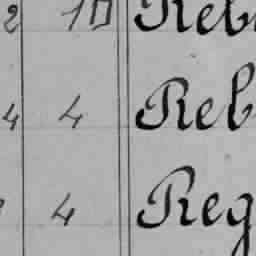 2 10 Reb
4 4 Reb
4 Reg